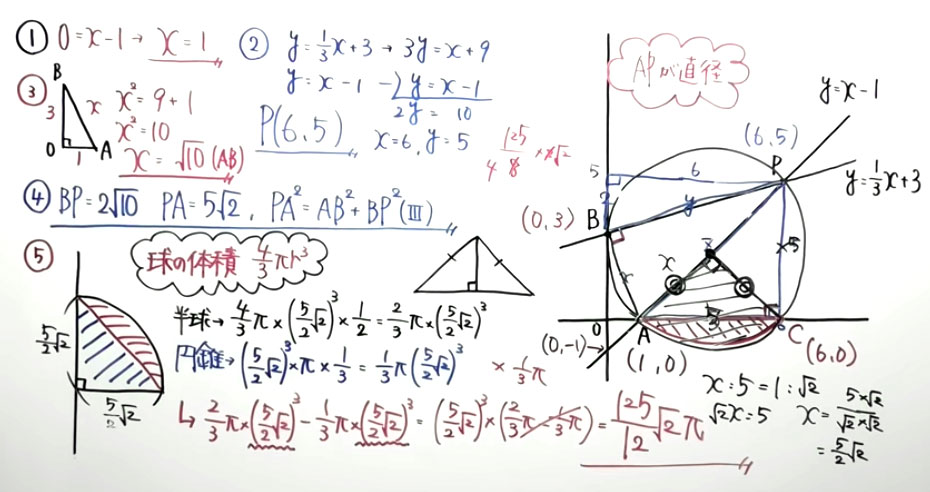 ① 0=x-1→x=1
② y=1/3x+3→3y=x+9
y=x-1 -)y=x-1
2y=10
P(6,5) x=6,y=5
③ B
3 x x²=9+1
x²=10
O 1 A x=√10(AB)
125/4 8 ×√2
④ BP=2√10 PA=5√2, PA²=AB²+BP²(Ⅲ)
⑤ 球の体積 4/3πr³
半球→4/3π×(5/2√2)³×1/2=2/3π×(5/2√2)³
円錐→(5/2√2)³×π×1/3=1/3π(5/2√2)³
×1/3π
↳2/3π×(5/2√2)³-1/3π×(5/2√2)³=(5/2√2)³×(2/3π-1/3π)=125/12√2π
5/2√2
5/2√2
APが直径
y=x-1
(6,5)
P
y=1/3x+3
5 6
2
y
(0,3) B
x x
5
5
0 A C
(0,-1)→ (1,0) (6,0)
x:5=1:√2
√2x=5 x=5×√2/√2×√2
=5/2√2